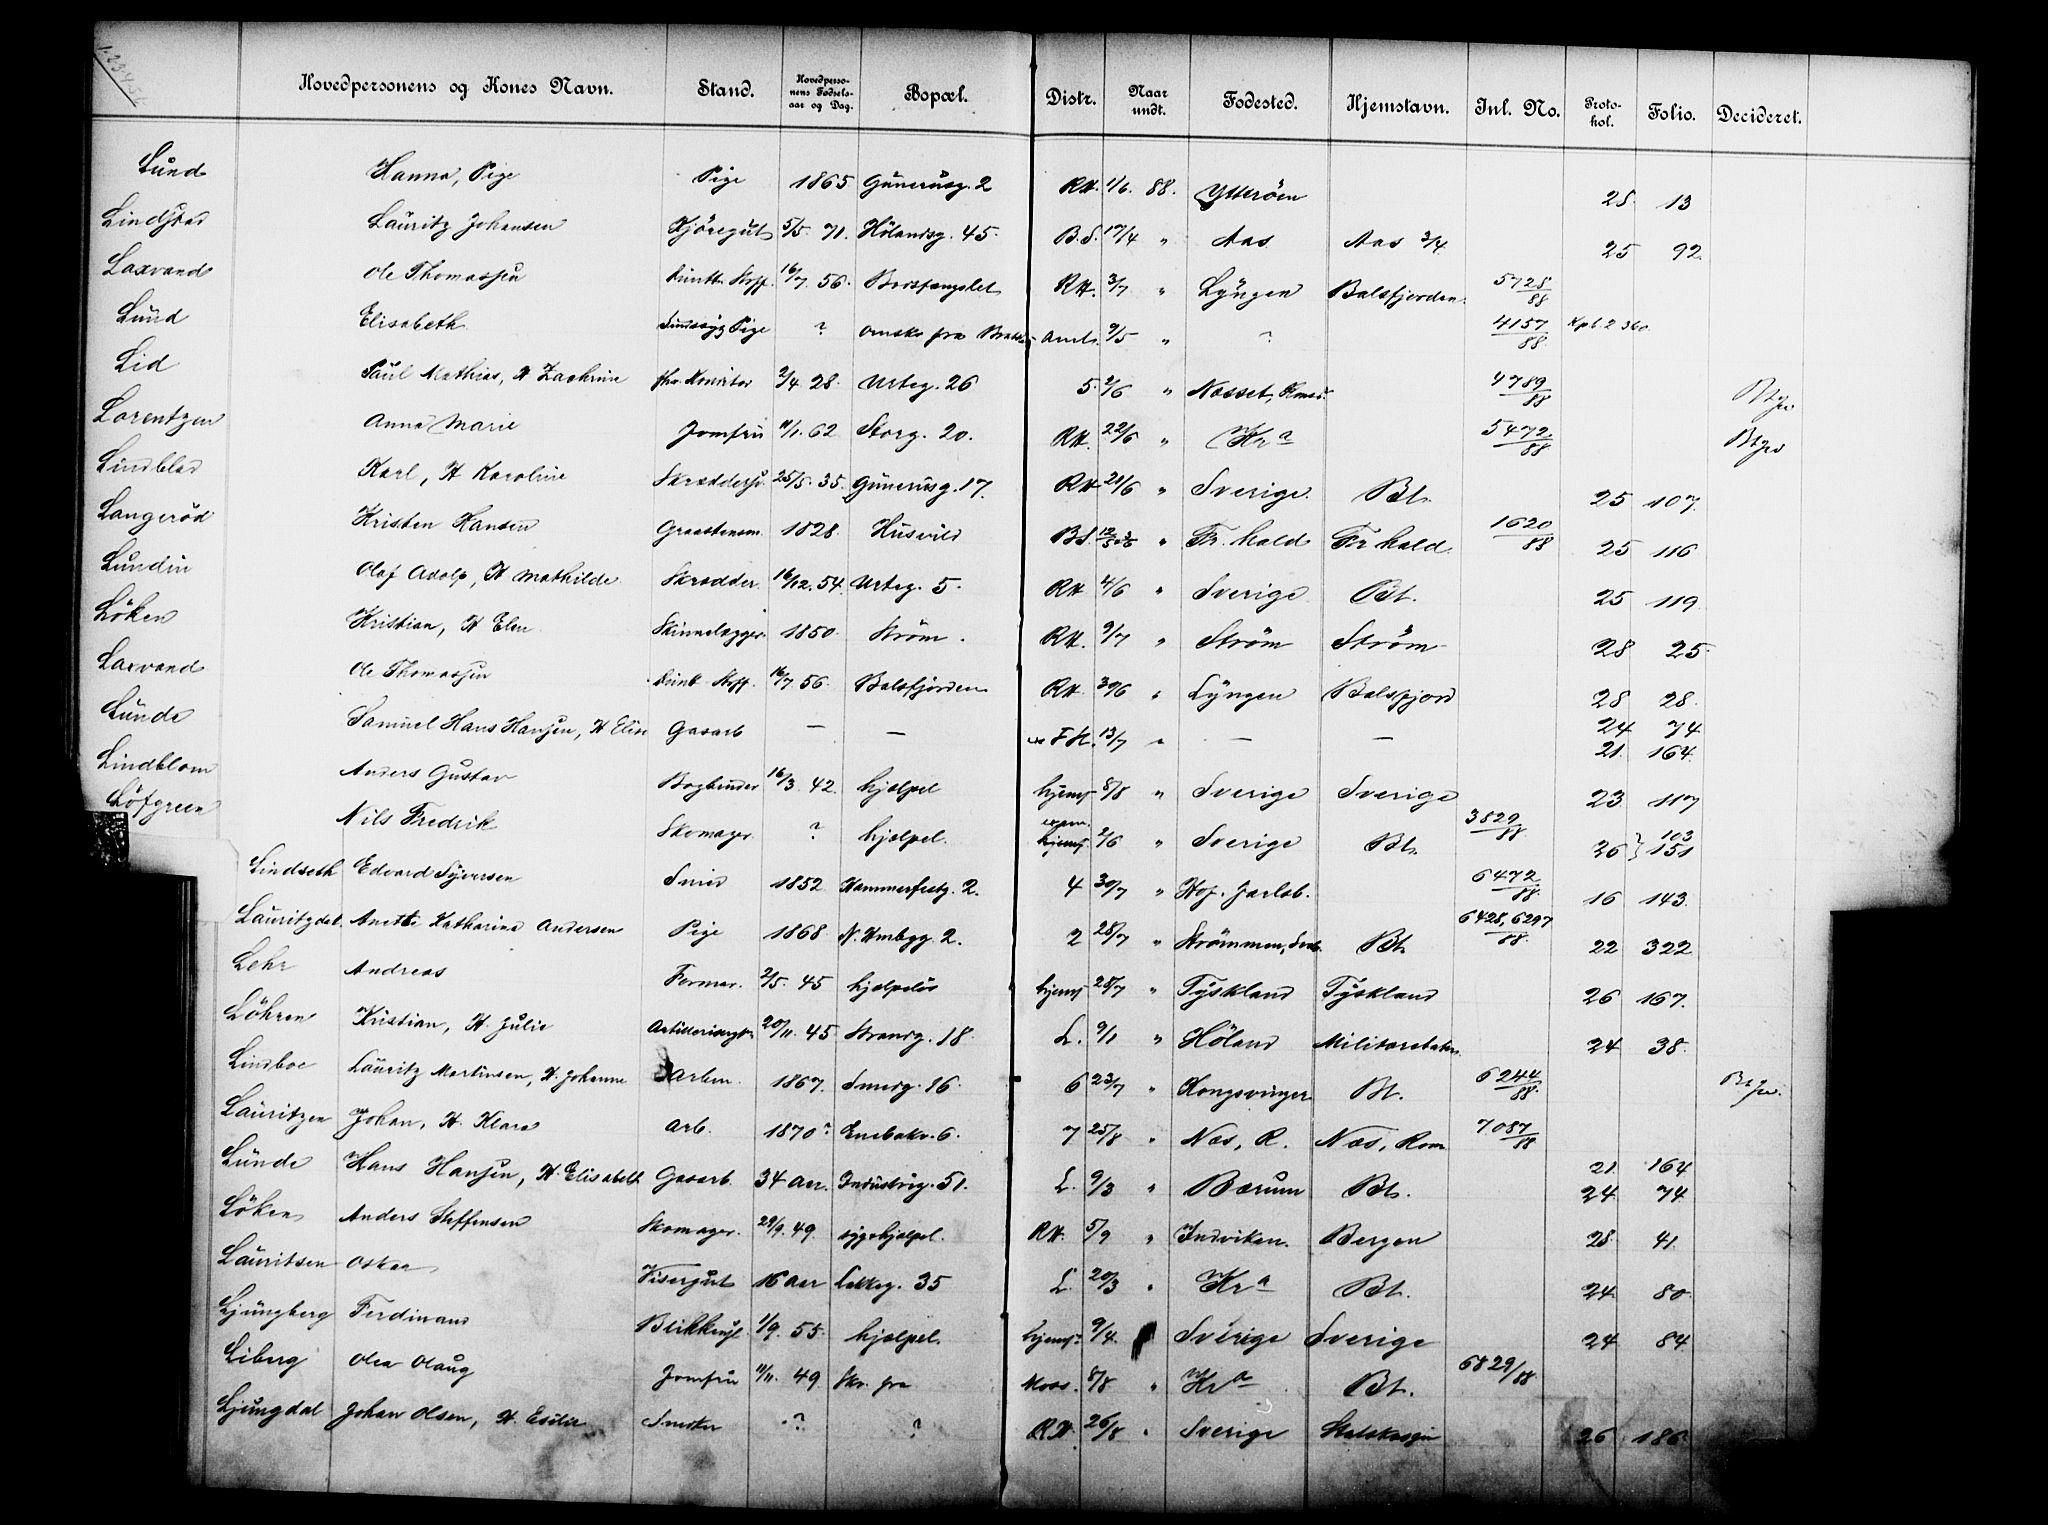 Hovedpersonens og Kones Navn. Stand. Hovedpersonens Fødselsaar og Dag. Bopæl. Distr. Naar undt. Fødested. Hjemstavn. Jnl. No. Protokol. Folio. Decideret.
Lund Hanna, Pige Pige 1865 Gunerusg. 2 RH. 1/6. 88. Ytterøen 28 13
Lindstad Lauritz Johansen Kjøregut 5/5. 71. Hølandsg. 45. B.S. 17/4 " Aas Aas 3/4. 25 92.
Laxvand Ole Thomassen 16/7 56. Bodsfængslet RH. 3/7 " Lyngen Balsfjorden 5728/88
Lund Elisabeth Sindssyg Pige ? ønske fra Amt. 9/5 " ? 4157/88 Kpb. 2 360
Lid Paul Mathias, H Zachrine fhv. 2/4 28. Urteg. 26 5. 2/6 " Næsset, 4789/88
Lorentzen Anna Marie Jomfru 11/1. 62 Storg. 20. RH. 22/6 " Kra 5472/88
Lindblad Karl, H Karoline Skræddersv. 25/5. 35. Gunerusg. 17. RH. 21/6 " Sverige Bt. 25 107.
Langerød Kristen Hansen Graastensm. 1828. Husvild BS. " Fr. hald Fr hald 1620/88 25 116
Lundin Olaf Adolp, H Mathilde Skrædder 16/12. 54. Urteg. 5. RH 4/6 " Sverige Bt. 25 119
Løken Kristian, H Elen Skindlægger. 1850. Strøm. RH. 9/7 " Strøm Strøm 28 25.
Laxvand Ole Thomassen 16/7 56. Balsfjorden RH. 30/6 " Lyngen Balsfjord 28 28.
Lunde Samuel Hans Hansen, H Elise Gasarb — — F.H. 13/7 " — — 24 74
21. 164.
Lindblom Anders Gustav Bogbinder 16/3 42. hjælpel hjemf 8/8 " Sverige Sverige 23 117
Löfgreen Nils Fredrik Skomager. ? hjælpel. hjemf. 2/6 " Sverige Bt. 3829/88 26 } 103
151
Lindseth Edvard Syversen Smed 1852 Hammerfestg. 2. 4 30/7 " Hof. Jarlsb. 6472/88. 16 143.
Lauritzdat. Anette Katharina Andersen Pige 1868 N. 2. 2 28/7 " Strømmen, Bt. 6428, 6297/88. 22 322
Lehr Andreas Former. 2/5. 45 hjælpeløs hjemf 28/7 " Tyskland Tyskland 26 167.
Løhren Kristian, H. Julie 20/11. 45 Strandg. 18. L. 9/1 " Høland 24 38.
Lindboe Lauritz Martinsen, H. Johanne Arbm. 1867. Smedg. 16. 6 23/7 " Kongsvinger Bt. 6244/88.
Lauritzen Johan, H. Klara Arb. 1870? Enebakv. 6. 7 25/8 " Næs, R. Næs, Rom 7087/88
Lunde Hans Hansen, H. Elisabeth Gasarb. 34 Aar. Industrig. 51. L. 9/3 " Bærum Bt. 21. 164
24 74
Løken Anders Steffensen Skomager. 29/9. 49. sygehjælpel. RH. 5/9 " Indviken. Bergen 28. 41.
Lauritsen Oskar Visergut 16 Aar Lakkeg. 35 L. 20/3 " Kra Bt. 24. 80.
Ljungberg Ferdinand Blikkensl. 1/9. 55. hjælpel. hjemf. 9/4. Sverige Sverige 24. 84.
Liberg Olea Olaug Jomfru 11/11. 49. Skr. fra Moss. 8/8 " Kra Bt. 6829/88
Ljungdal Johan Olsen, H. ? ? RH. 26/8 " Sverige 26 186.